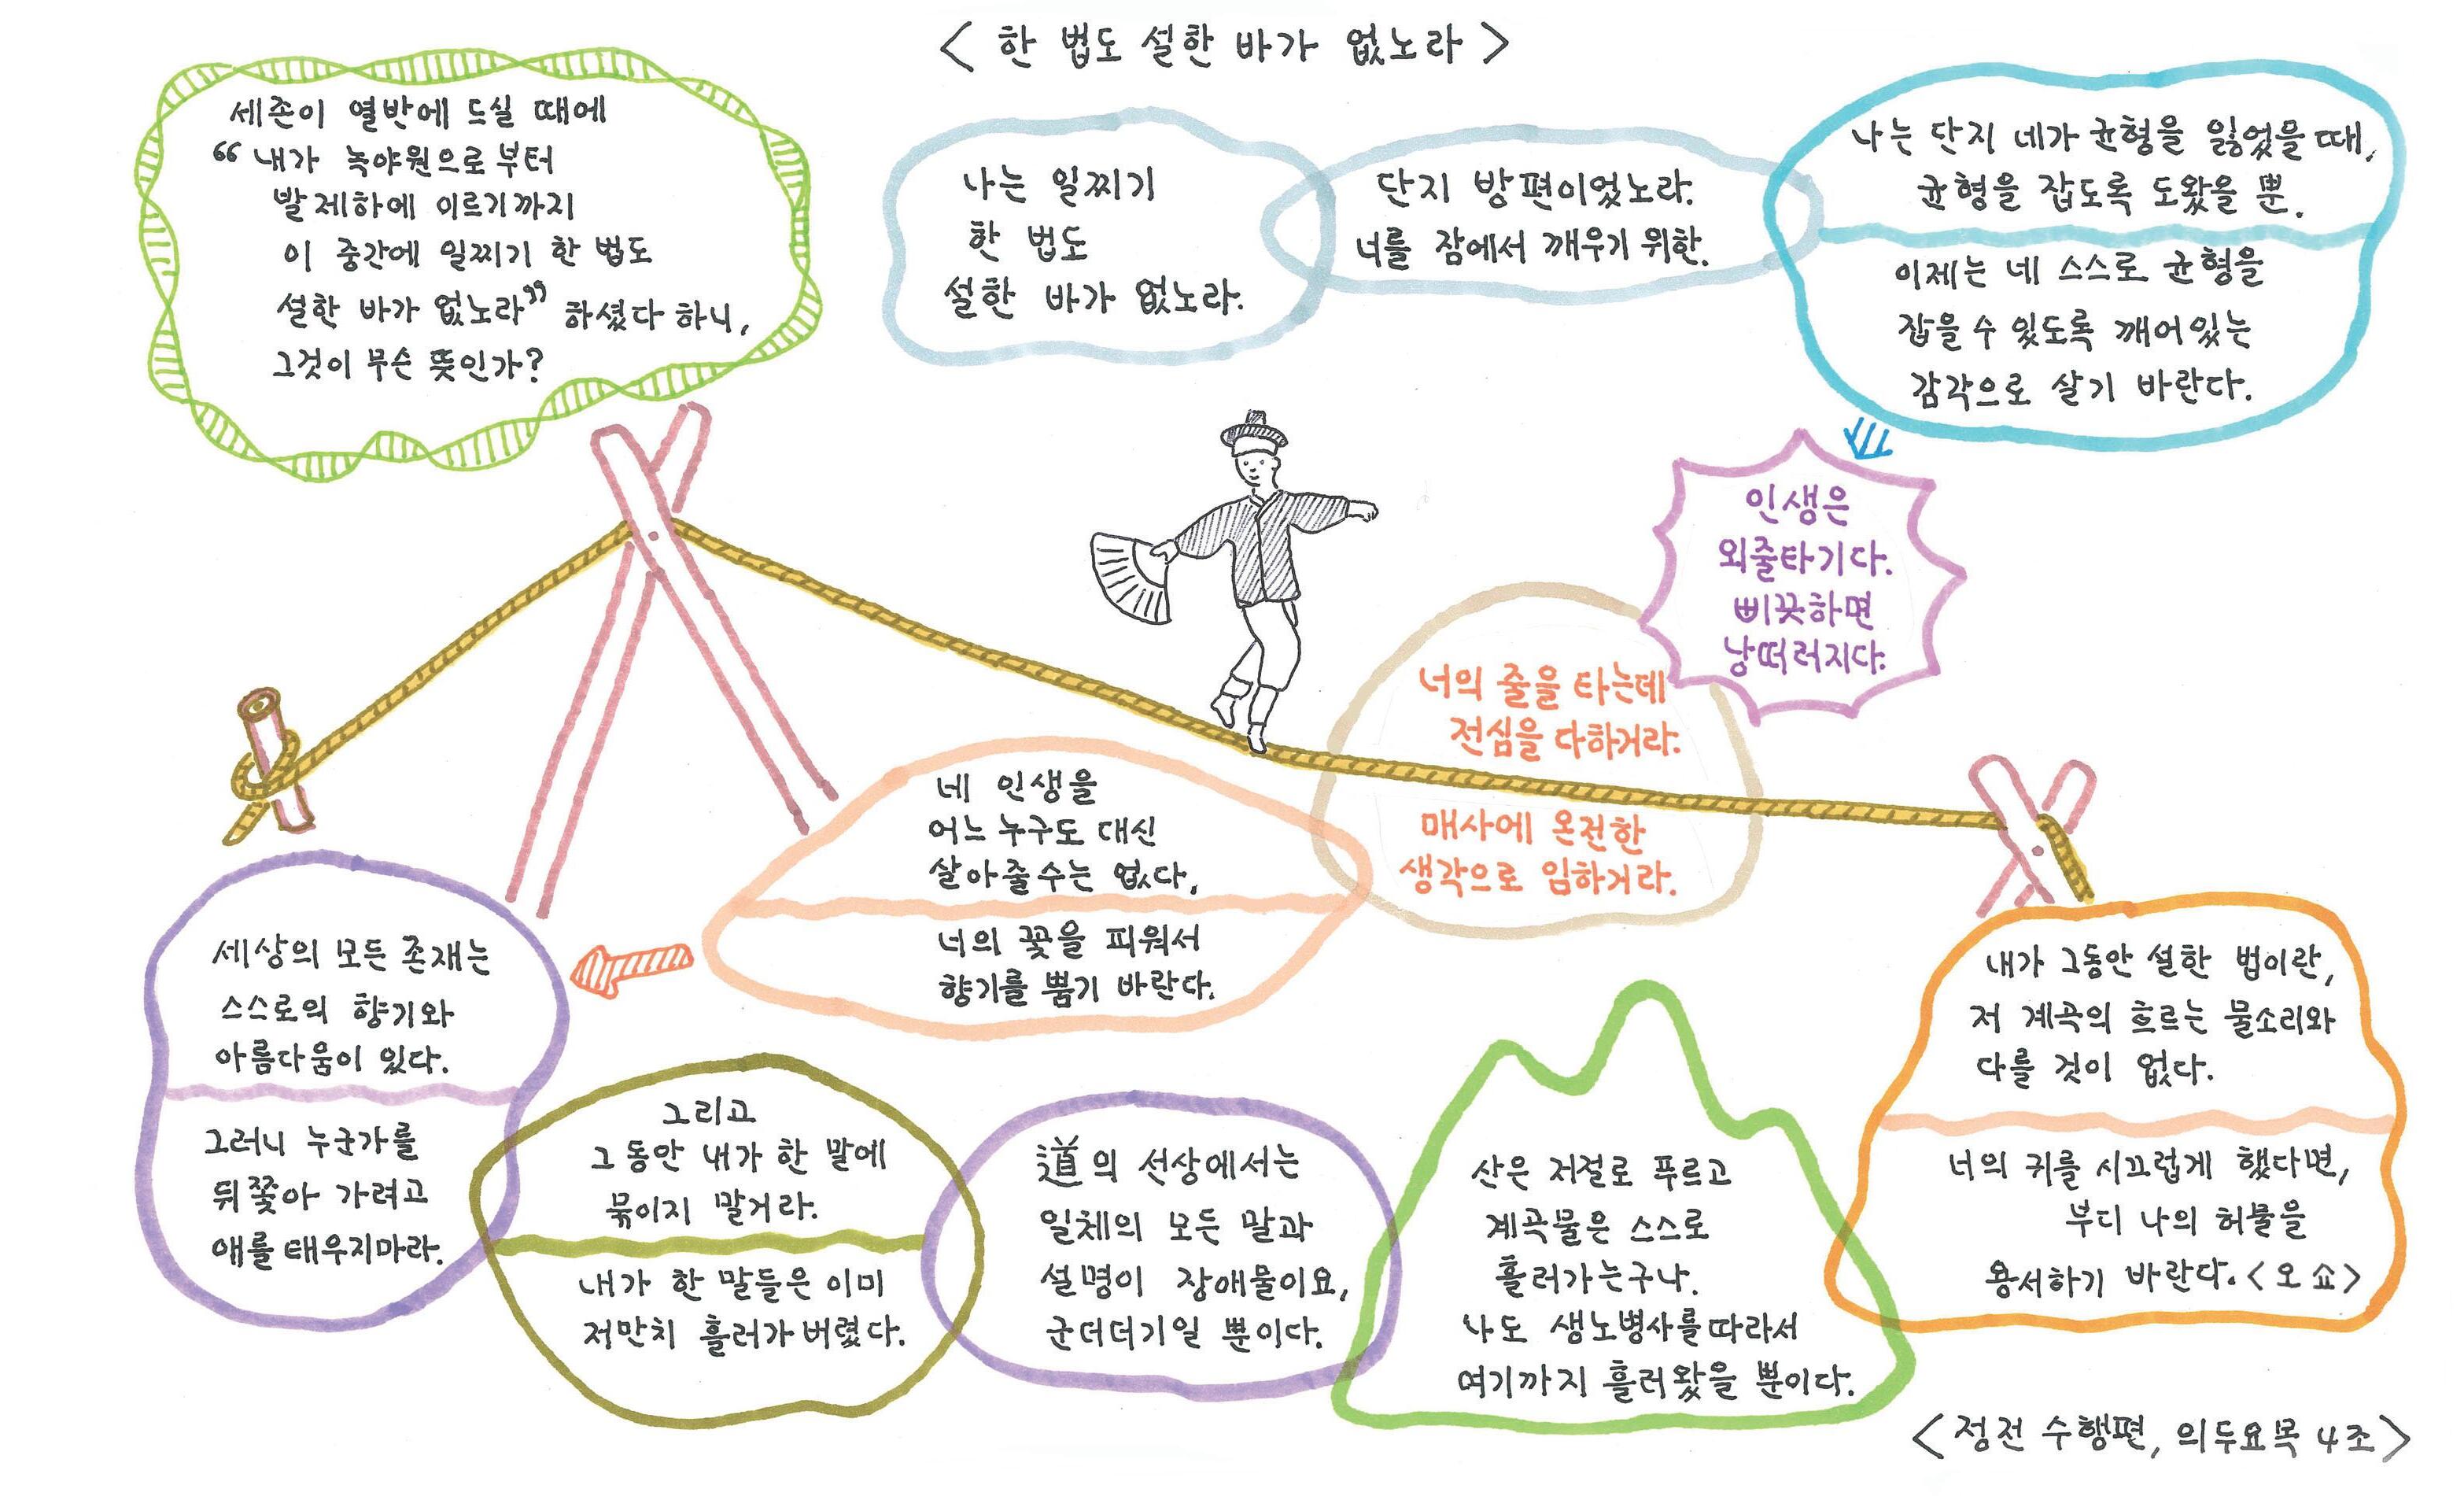 < 한 법도 설한 바가 없노라 >
세존이 열반에 드실 때에
“ 내가 녹야원으로부터
발제하에 이르기까지
이 중간에 일찌기 한 법도
설한 바가 없노라” 하셨다 하니,
그것이 무슨 뜻인가?
나는 일찌기
한 법도
설한 바가 없노라.
단지 방편이었노라.
너를 잠에서 깨우기 위한.
나는 단지 네가 균형을 잃었을 때,
균형을 잡도록 도왔을 뿐.
이제는 네 스스로 균형을
잡을 수 있도록 깨어있는
감각으로 살기 바란다.
인생은
외줄타기다.
삐끗하면
낭떠러지다.
너의 줄을 타는데
전심을 다하거라.
매사에 온전한
생각으로 임하거라.
네 인생을
어느 누구도 대신
살아줄 수는 없다.
너의 꽃을 피워서
향기를 뿜기 바란다.
세상의 모든 존재는
스스로의 향기와
아름다움이 있다.
그러니 누군가를
뒤쫓아 가려고
애를 태우지마라.
그리고
그동안 내가 한 말에
묶이지 말거라.
내가 한 말들은 이미
저만치 흘러가 버렸다.
道의 선상에서는
일체의 모든 말과
설명이 장애물이요,
군더더기일 뿐이다.
산은 저절로 푸르고
계곡물은 스스로
흘러가는구나.
나도 생노병사를 따라서
여기까지 흘러왔을 뿐이다.
내가 그동안 설한 법이란,
저 계곡의 흐르는 물소리와
다를 것이 없다.
너의 귀를 시끄럽게 했다면,
부디 나의 허물을
용서하기 바란다. <오쇼>
<정전 수행편, 의두요목 4조>